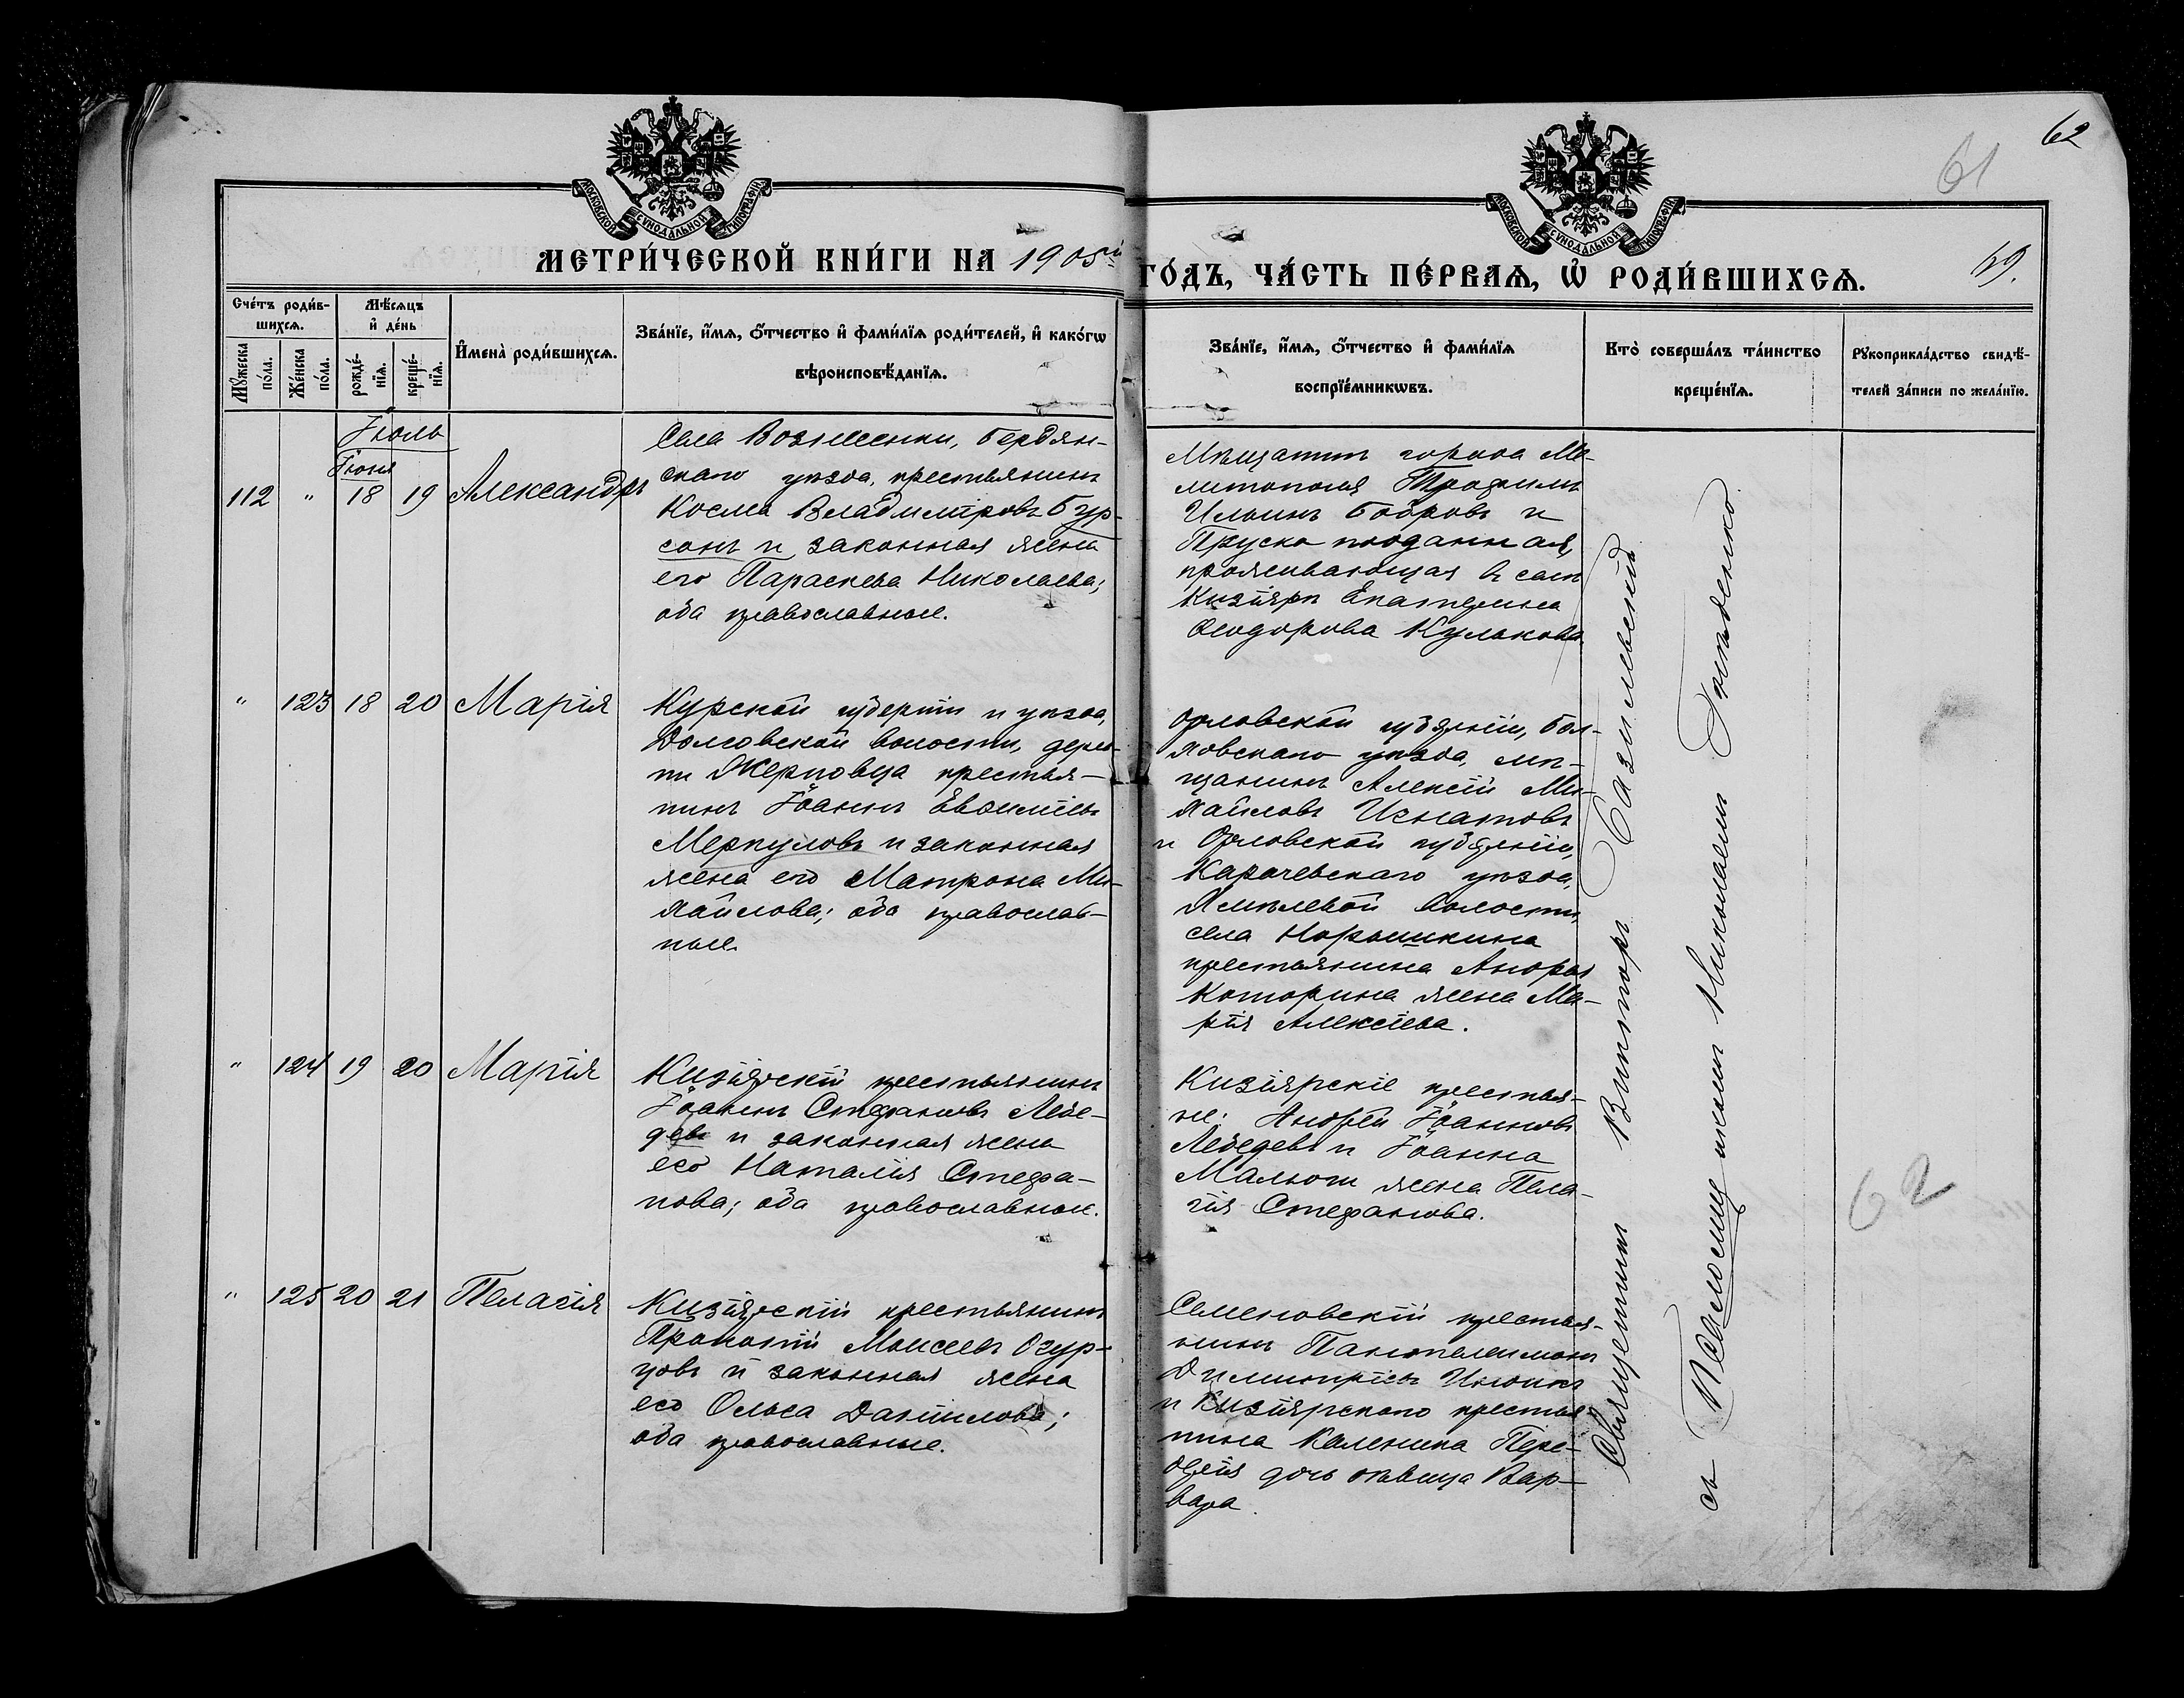 62
61
МОСКОВСКОЙ СѴНОДАЛЬНОЙ ТИПОГРАФІИ
МОСКОВСКОЙ СѴНОДАЛЬНОЙ ТИПОГРАФІИ
МЕТРИ́ЧЕСКОЙ КНИ́ГИ НА 1905й
ГО́ДЪ, ЧА́СТЬ ПЕ́РВАѦ, Ѡ҆ РОДИ́ВШИХСѦ.
69.
Сче́тъ роди́в-
шихсѧ.
Мꙋ́жеска по́ла.
Же́нска по́ла.
Мѣ́сѧцъ
и҆ де́нь
рожде́-
нїѧ.
креще́-
нїѧ.
И҆мена̀ роди́вшихсѧ.
Зва́нїе, и҆́мѧ, ѻ҆́тчество и҆ фами́лїѧ роди́телей, и҆ како́гѡ
вѣроисповѣ́данїѧ.
Зва́нїе, и҆́мѧ, ѻ҆́тчество и҆ фами́лїѧ
воспрїе́мникѡвъ.
Кто̀ соверша́лъ та́инство
креще́нїѧ.
Рꙋкоприкла́дство свидѣ́-
телей за́писи по жела́нїю.
Іюль
Іюня
112 " 18 19 Александръ
Села Вознесенки, Бердян-
скаго уѣзда, крестьянинъ
Косма Владиміровъ Бур-
санъ и законная жена
его Параскева Николаева;
оба православные.
Мѣщанинъ города Ме-
литополя Трофимъ
Ильинъ Бобровъ и
Пруско подданная,
проживающая въ селѣ
Кизіярѣ Екатерина
Ѳеодорова Кулакова
" 123 18 20 Марія
Курской губерніи и уѣзда,
волости, дерев-
ни Жерновца крестья-
нинъ Іоаннъ Евѳиміевъ
Меркуловъ и законная
жена его Матрона Ми-
хайлова; оба православ-
ные.
Орловской губерніи, Бол-
ховскаго уѣзда, мѣ-
щанинъ Алексій Ми-
хайловъ Игнатовъ
и Орловской губерніи,
Карачевскаго уѣзда,
волости,
села Нарышкина
крестьянина Андрея
Которина жена Ма-
рія Алексіева.
" 124 19 20 Марія
Кизіярскій крестьянинъ
Іоаннъ Стефановъ Лебе-
девъ и законная жена
его Наталія Стефа-
нова; оба православные.
Кизіярскіе крестья-
не: Андрей Іоанновъ
Лебедевъ и Іоанна
жена Пела-
гія Стефанова.
" 125 20 21 Пелагія
Кизіярскій крестьянинъ
Прокопій Моисеевъ Огур-
цовъ и законная жена
его Ольга Даніилова;
оба православные.
Семеновскій крестья-
нинъ Пантелеимонъ
Димитріевъ
и Кизіярскаго крестья-
нина Калиника Пере-
дочь дѣвица Вар-
вара.
Священникъ Викторъ
съ Псаломщикомъ Николаемъ
62